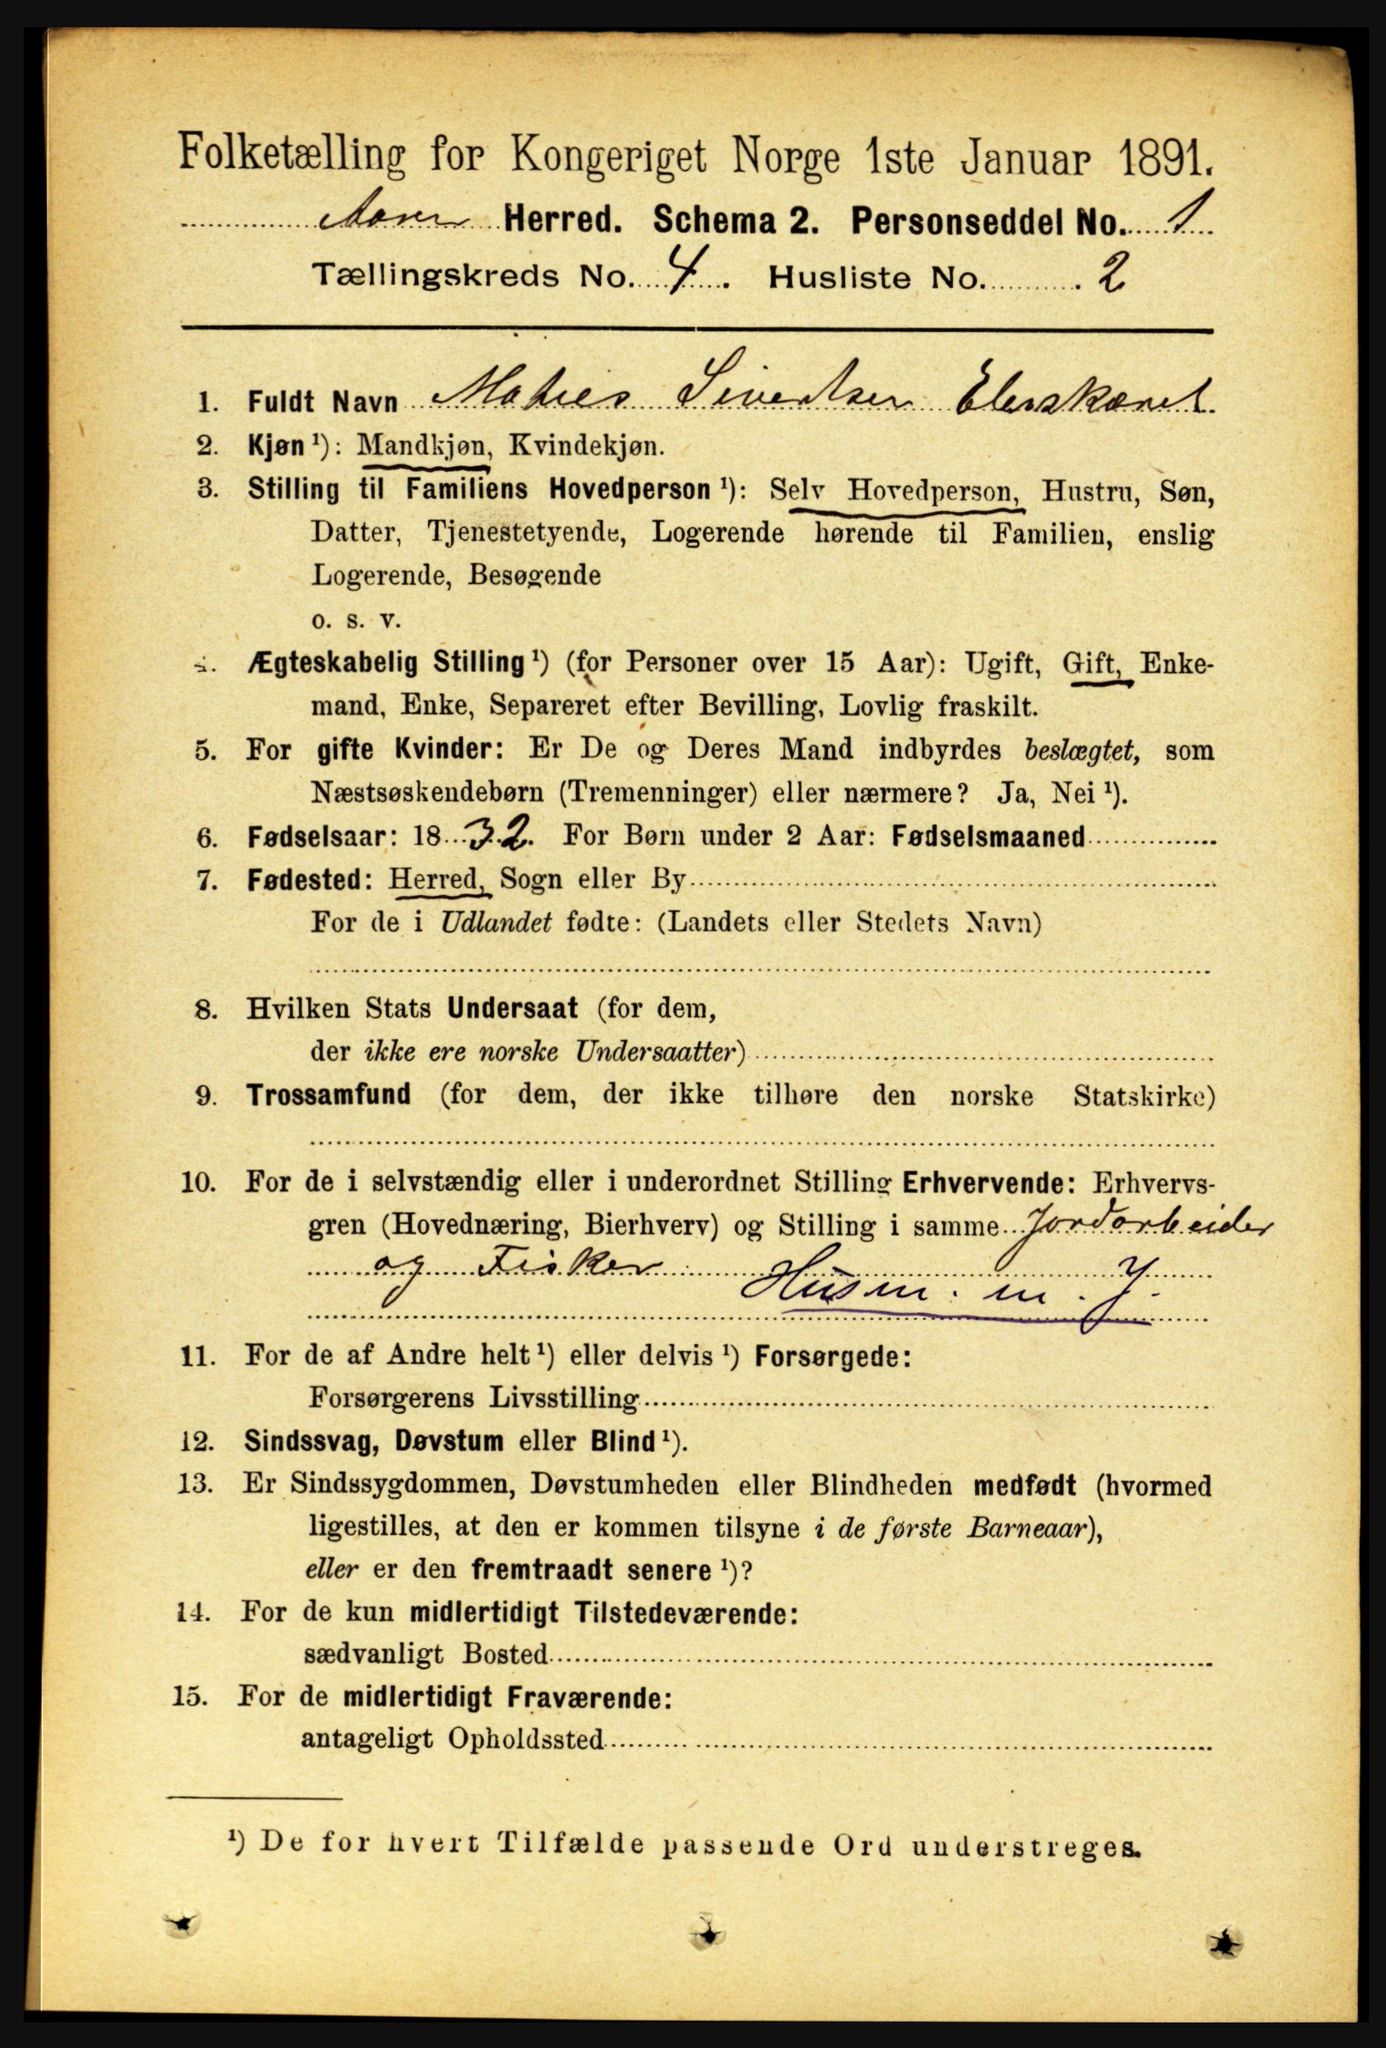 Folketælling for Kongeriget Norge 1ste Januar 1891.
Herred. Schema 2. Personseddel No. 1
Tællingskreds No. 4. Husliste No. 2
1. Fuldt Navn Maties Sivertsen Elvskaret
2. Kjøn ¹): Mandkjøn, Kvindekjøn.
3. Stilling til Familiens Hovedperson ¹): Selv Hovedperson, Hustru, Søn,
Datter, Tjenestetyende, Logerende hørende til Familien, enslig
Logerende, Besøgende
o. s. v.
4. Ægteskabelig Stilling ¹) (for Personer over 15 Aar): Ugift, Gift, Enke-
mand, Enke, Separeret efter Bevilling, Lovlig fraskilt.
5. For gifte Kvinder: Er De og Deres Mand indbyrdes beslægtet, som
Næstsøskendebørn (Tremenninger) eller nærmere? Ja, Nei ¹).
6. Fødselsaar: 18 32. For Børn under 2 Aar: Fødselsmaaned
7. Fødested: Herred, Sogn eller By
For de i Udlandet fødte: (Landets eller Stedets Navn)
8. Hvilken Stats Undersaat (for dem,
der ikke ere norske Undersaatter)
9. Trossamfund (for dem, der ikke tilhøre den norske Statskirke)
10. For de i selvstændig eller i underordnet Stilling Erhvervende: Erhvervs-
gren (Hovednæring, Bierhverv) og Stilling i samme Jordarbeider
og Fisker Husm. m. J.
11. For de af Andre helt ¹) eller delvis ¹) Forsørgede:
Forsørgerens Livsstilling
12. Sindssvag, Døvstum eller Blind ¹).
13. Er Sindssygdommen, Døvstumheden eller Blindheden medfødt (hvormed
ligestilles, at den er kommen tilsyne i de første Barneaar),
eller er den fremtraadt senere ¹)?
14. For de kun midlertidigt Tilstedeværende:
sædvanligt Bosted
15. For de midlertidigt Fraværende:
antageligt Opholdssted
¹) De for hvert Tilfælde passende Ord understreges.